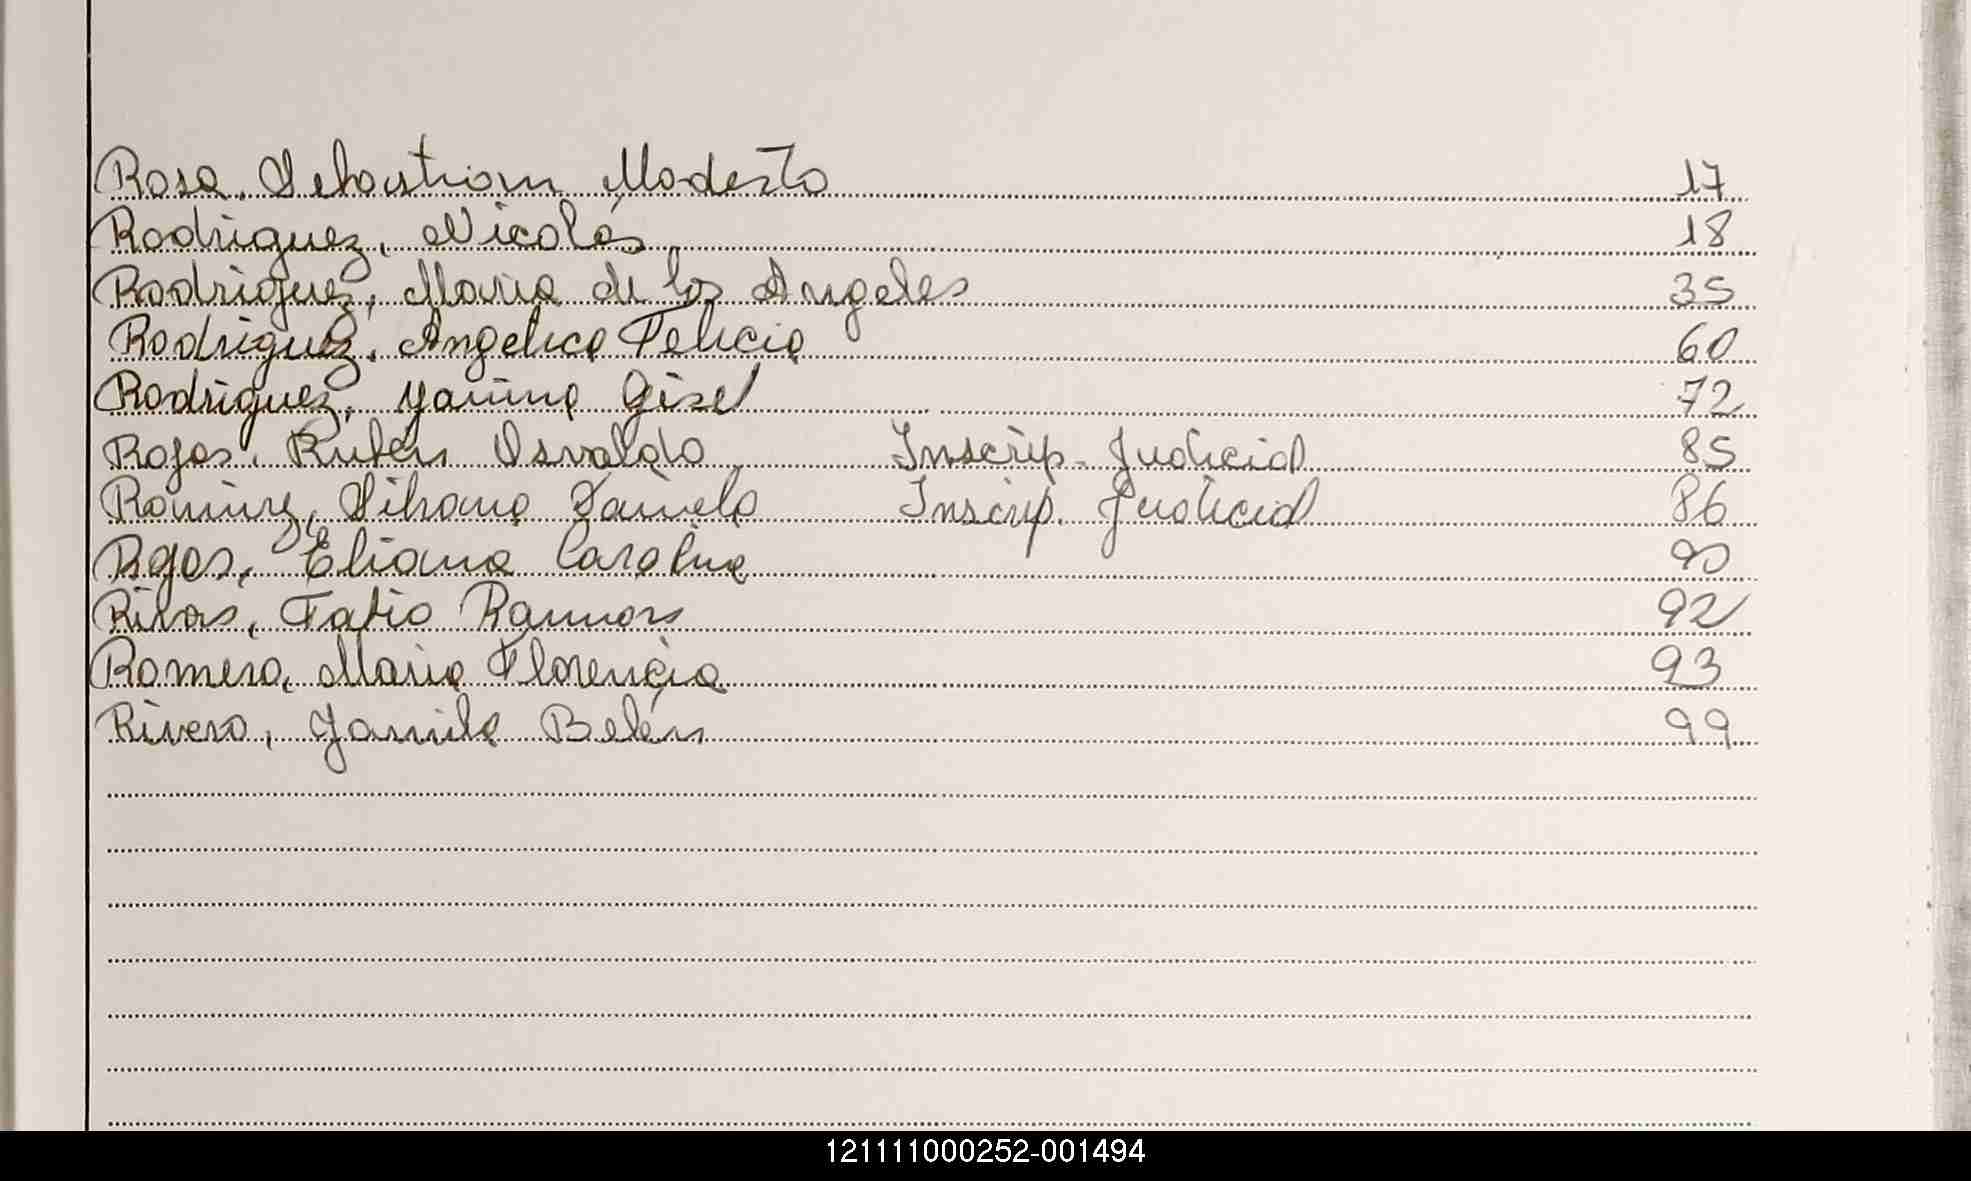 Rosa, Sebastian Modesto 17
Rodriguez, Nicolás 18
Rodriguez, Maria de los Angeles 35
Rodriguez, Angelica Felicia 60
Rodriguez, Yanina Gisel 72
Rojas, Rubén Osvaldo Inscrip. Judicial 85
Ramirez, Silvana Daniela Inscrip. Judicial 86
Rojas, Eliana Carolina 90
Rivas, Fabio Ramon 92
Romero, Maria Florencia 93
Rivero, Yamila Belén 99
121111000252-001494